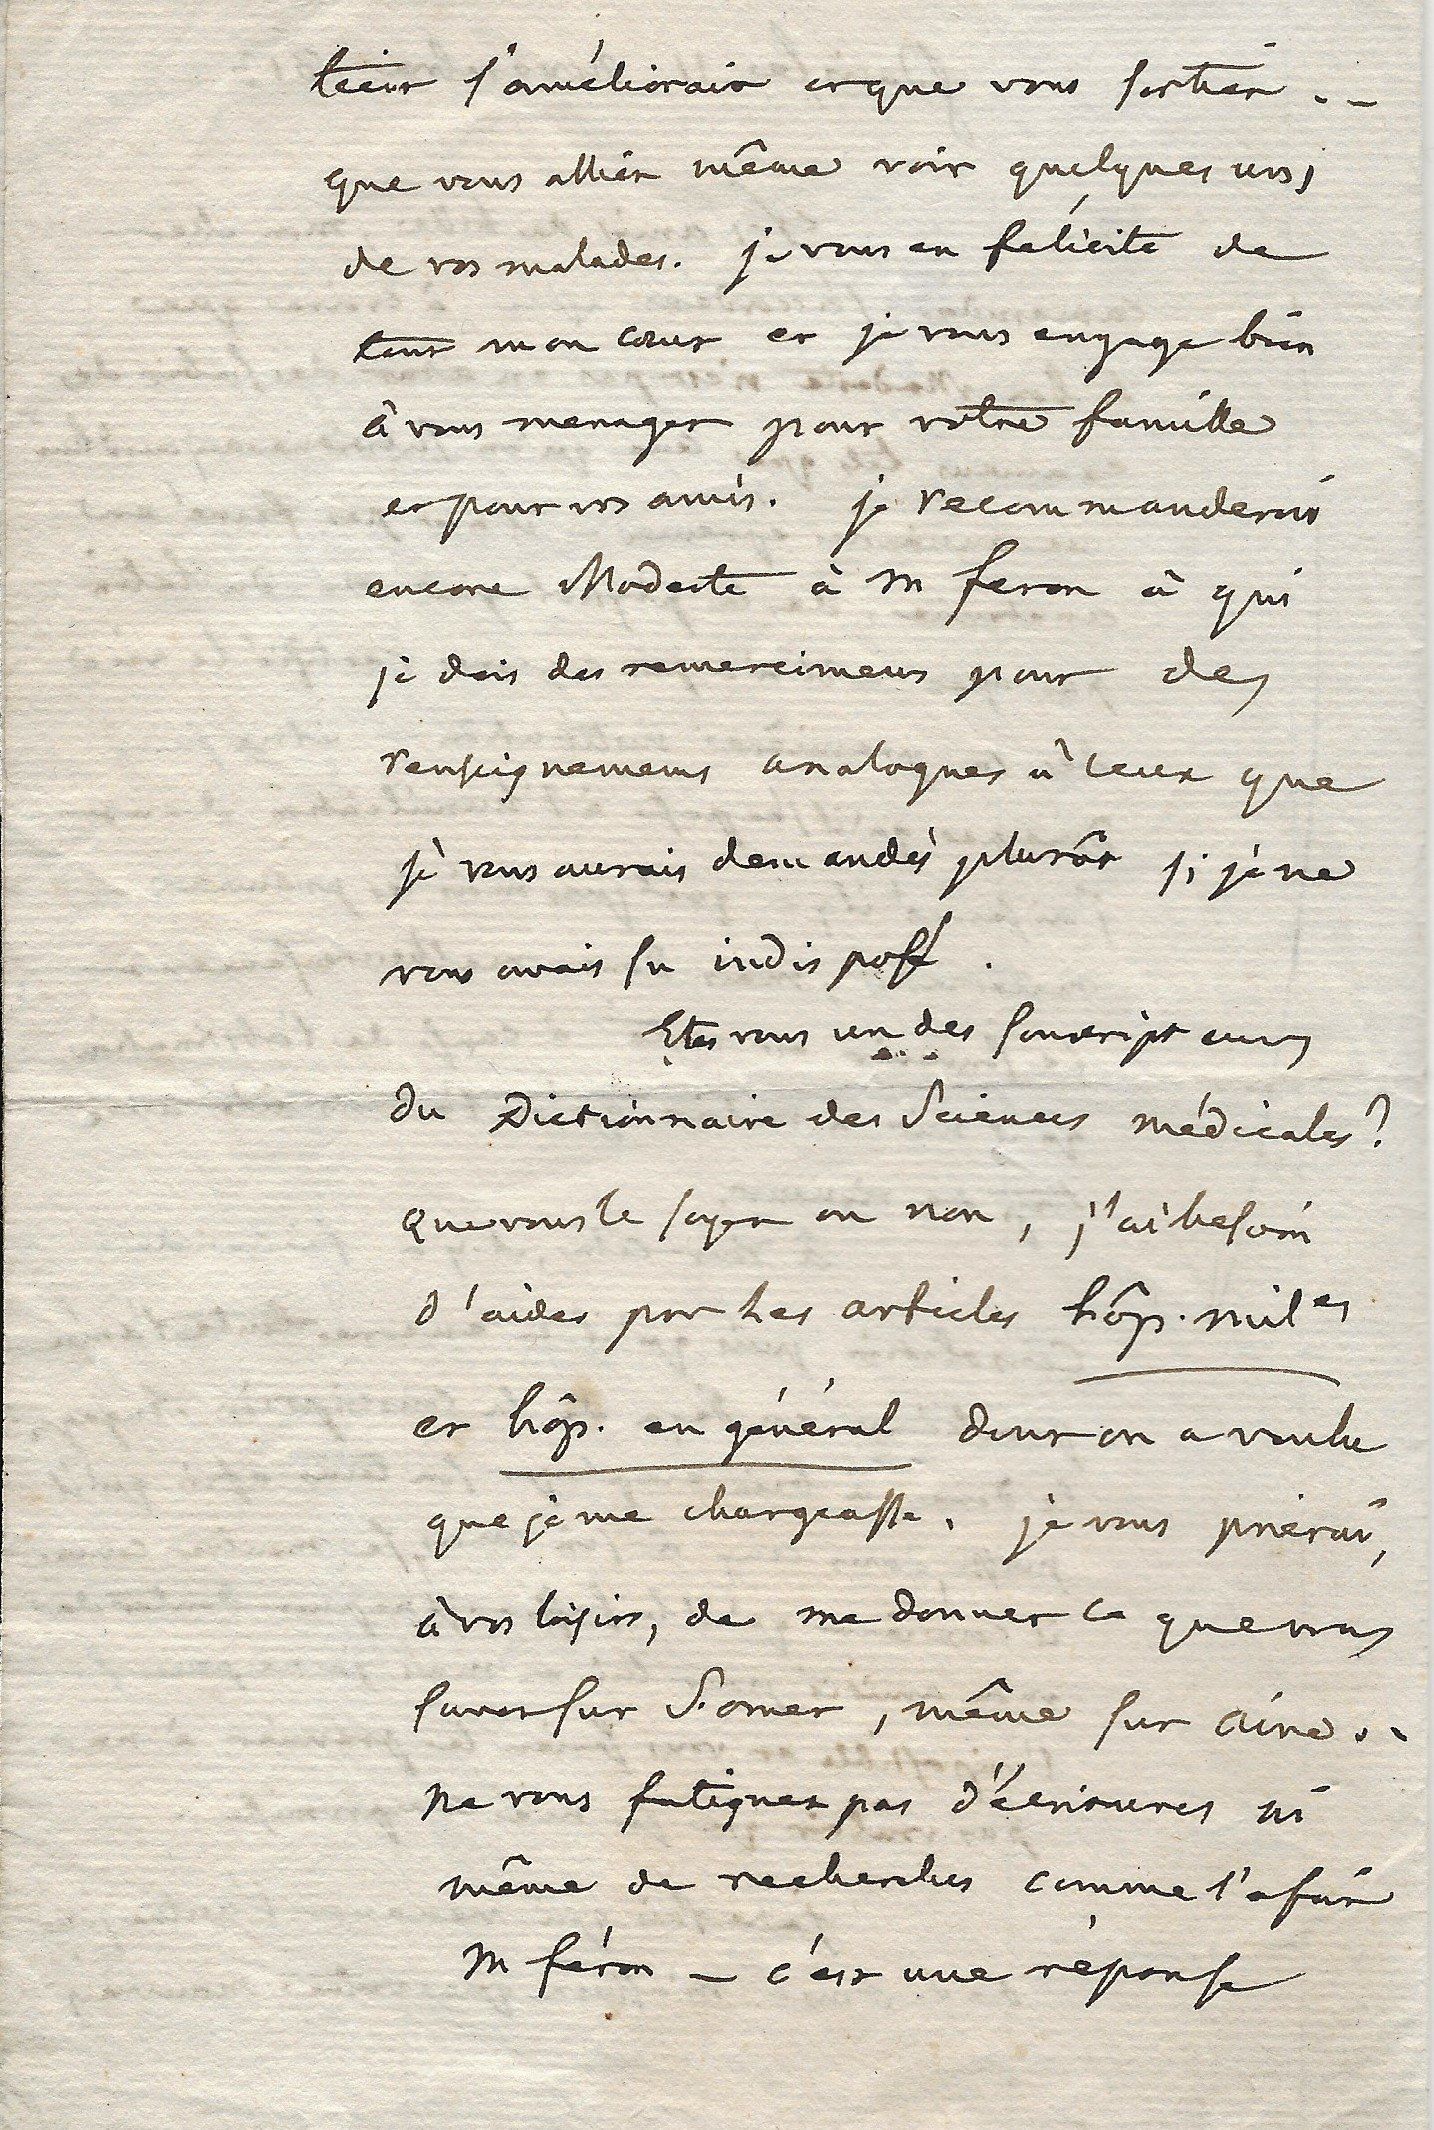 s'améliorait et que vous sortiez . _
que vous alliez même voir quelques uns
de vos malades. je vous en félicite de
tout mon cœur et je vous engage bien
à vous menager pour votre famille
et pour vos amis. je recommanderai
encore Modeste à M feron à qui
je dois des remercimens pour des
renseignemens analogues à ceux que
je vous aurais demandés plutôt si je ne
vous avais su indisposé.
Etes vous un des souscripteurs
du Dictionnaire des Sciences médicales?
que vous le soyez ou non, j'ai besoin
d'aides pour les articles hôp. mil.es
et hôp. en général dont on a voulu
que je me chargeasse. je vous prierai,
à vos loisirs, de me donner ce que vous
savez sur S.omer, même sur aire..
ne vous fatiguez pas d'écritures ni
même de recherches comme l'a fait
M féron _ c'est une réponse